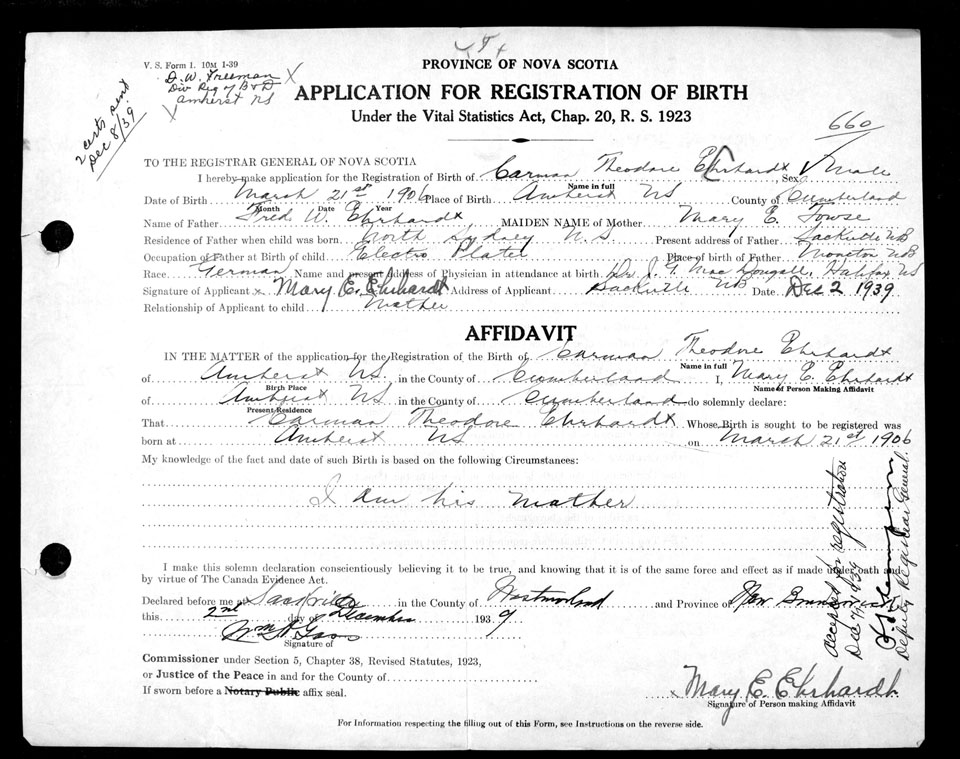 V. S. Form 1. 10M 1-39
D. W. Freeman
Div Reg of B & D
Amherst NS
2 certs sent
Dec 8/39
PROVINCE OF NOVA SCOTIA
APPLICATION FOR REGISTRATION OF BIRTH
Under the Vital Statistics Act, Chap. 20, R. S. 1923
660
TO THE REGISTRAR GENERAL OF NOVA SCOTIA
I hereby make application for the Registration of Birth of Carman Theodore Ehrhardt Sex Male
Name in full
Date of Birth March 21st 1906 Place of Birth Amherst NS County of Cumberland
Month Date Year
Name of Father Fred W. Ehrhardt MAIDEN NAME of Mother Mary E. Towse
Residence of Father when child was born North Sydney N.S. Present address of Father Sackville NB
Occupation of Father at Birth of child Electro Plater Place of birth of Father Moncton NB
Race German Name and present address of Physician in attendance at birth Dr J. F. MacDougall, Halifax NS
Signature of Applicant x Mary E. Ehrhardt Address of Applicant Sackville NB Date Dec 2 1939
Relationship of Applicant to child Mother
AFFIDAVIT
IN THE MATTER of the application for the Registration of the Birth of Carman Theodore Ehrhardt
Name in full
of Amherst NS. in the County of Cumberland I, Mary E Ehrhardt
Birth Place Name of Person Making Affidavit
of Amherst NS in the County of Cumberland do solemnly declare:
Present Residence
That Carman Theodore Ehrhardt Whose Birth is sought to be registered was
born at Amherst NS on March 21st 1906
My knowledge of the fact and date of such Birth is based on the following Circumstances:
I am his Mother
I make this solemn declaration conscientiously believing it to be true, and knowing that it is of the same force and effect as if made under oath and
by virtue of The Canada Evidence Act.
Declared before me at Sackville in the County of Westmorland and Province of New Brunswick
this 2nd day of December 1939
Signature of
Commissioner under Section 5, Chapter 38, Revised Statutes, 1923,
or Justice of the Peace in and for the County of
If sworn before a Notary Public affix seal.
x Mary E. Ehrhardt
Signature of Person making Affidavit
For Information respecting the filling out of this Form, see Instructions on the reverse side.
Accepted for registration
Dec 1939
Deputy Registrar General.